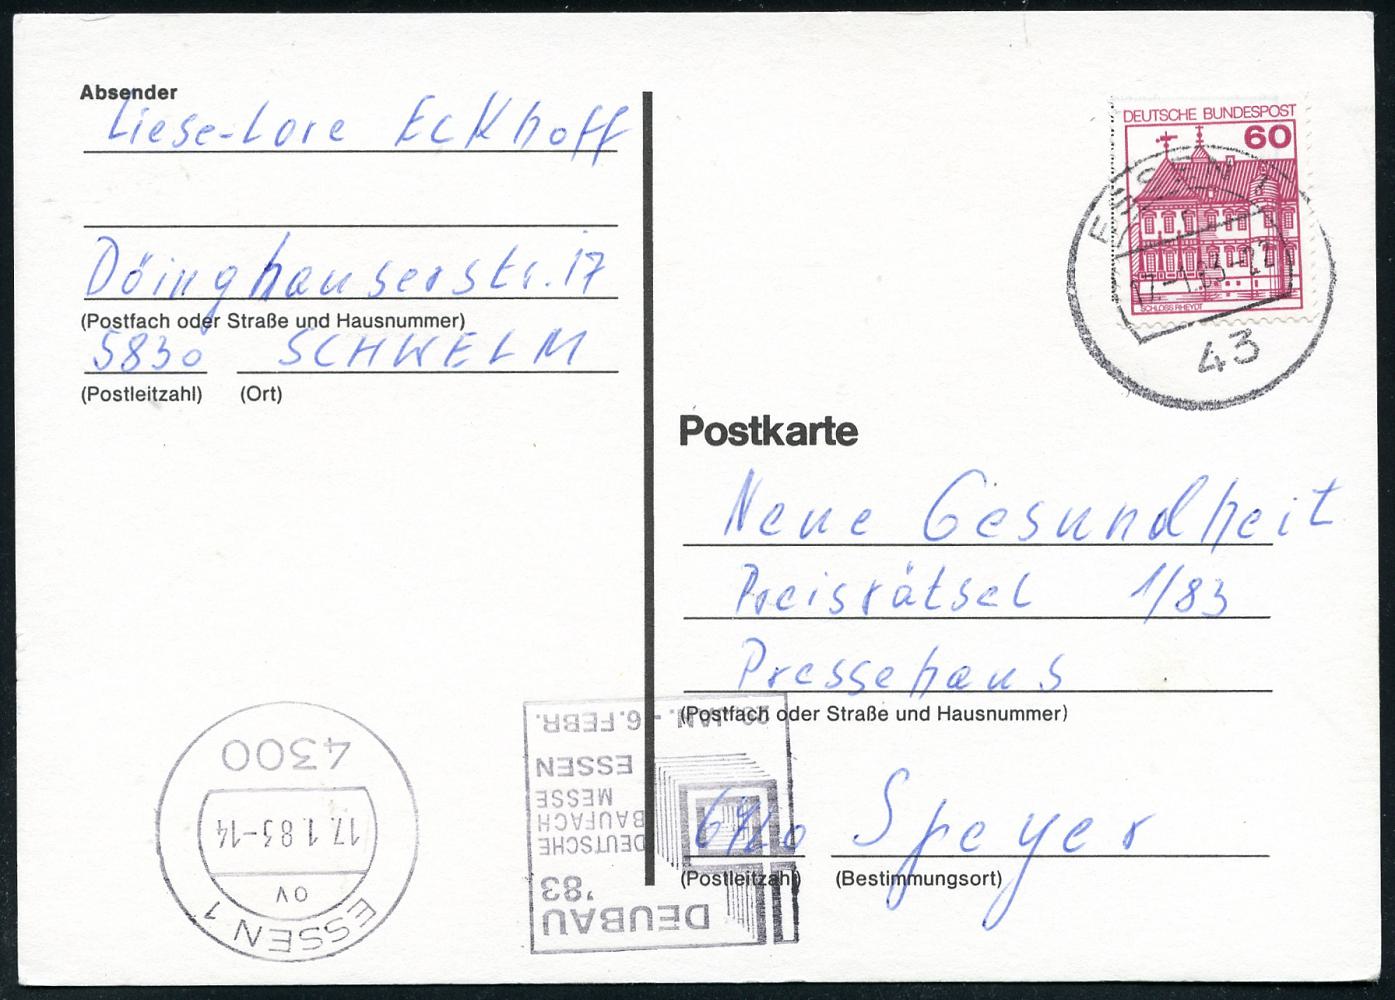 Absender
Liese-Lore Eckhoff
Döinghauserstr. 17
(Postfach oder Straße und Hausnummer)
5830 SCHWELM
(Postleitzahl) (Ort)
DEUTSCHE BUNDESPOST
60
SCHLOSS RHEYDT
ESSEN 1
17.-1.83-22
43
Postkarte
Neue Gesundheit
Preisrätsel 1/83
Pressehaus
(Postfach oder Straße und Hausnummer)
6720 Speyer
(Postleitzahl) (Bestimmungsort)
DEUBAU
'83
DEUTSCHE
BAUFACH
MESSE
ESSEN
JAN. - 6. FEBR.
ESSEN 1
ov
17.1.83-14
4300